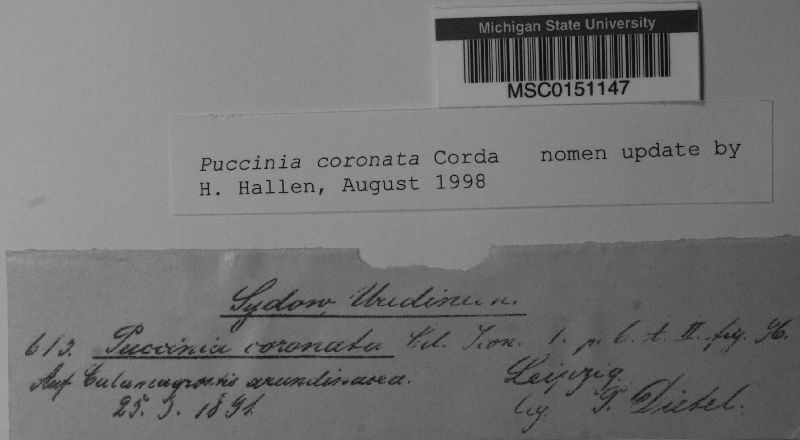 Michigan State University
MSC0151147
Puccinia coronata Corda nomen update by
H. Hallen, August 1998
Sydow, Uredineen.
613. Puccinia coronata Cd. Icon. 1. p. 6. t. II. fig. 96.
Auf Calamagrostis arundinacea.
Leipzig
25. 9. 1891.
leg. P. Dietel.